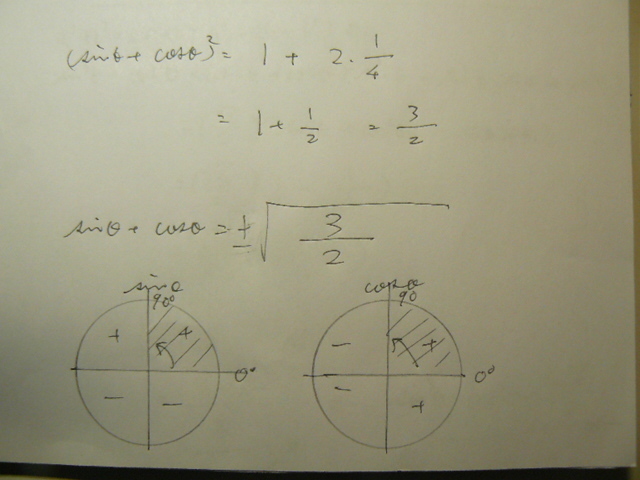 (sinθ + cosθ)² = 1 + 2·1/4
= 1 + 1/2 = 3/2
sinθ + cosθ = ±√(3/2)
sinθ cosθ
90° 90
+ + − +
0° 0°
− − − +